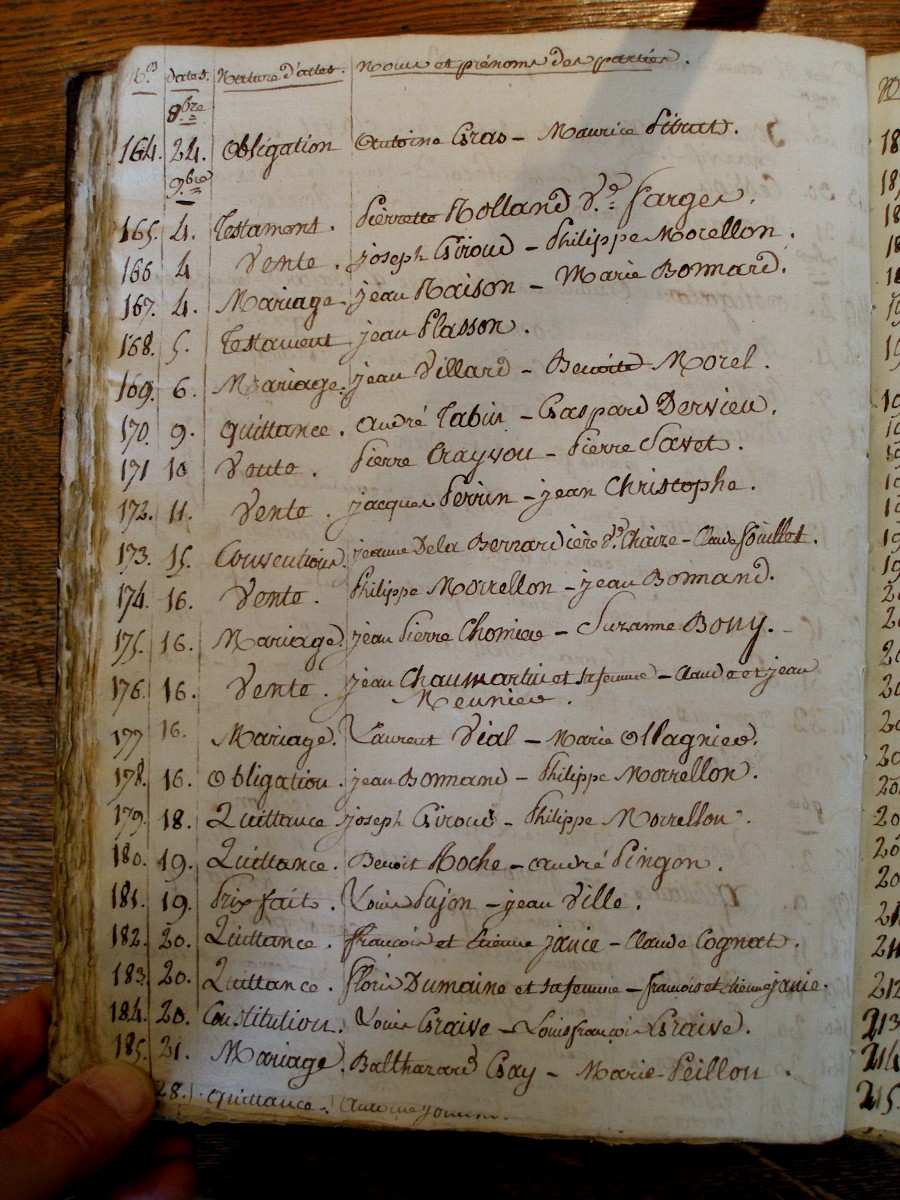 N.os dates. Nature d'actes. Noms et prénoms des parties.
8.bre
164. 24. Obligation Antoine Gras - Maurice Pitrat.
9.bre
165. 4. Testament. Pierrette Rolland v.e Farges.
166 4 Vente. joseph Giroud - Philippe Morellon.
167. 4. Mariage jean Raison - Marie Bonnard.
168. 5. Testament jean Plasson.
169. 6. Mariage. jean Villard - Benoite Morel.
170 9. quittance. andré Tabin - Gaspard Dervieu.
171 10 Vente. Pierre Crayvon - Pierre Savet.
172. 11. Vente. jacques Perrin - jean Christophe.
173. 15. Conventions. jeanne Dela Bernardière v.e Chaize - Claude Souillet.
174. 16. Vente. Philippe Morrellon - jean Bonnand.
175. 16. Mariage jean Pierre Chomier - Suzanne Bony.
176. 16. Vente. jean Chaumartin et sa femme - Claude et jean
Meunier.
177 16. Mariage. Laurent Vial - Marie Ollagnier.
178. 16. Obligation. jean Bonnand - Philippe Morrellon.
179. 18. Quittance joseph Giroud - Philippe Morrellon.
180. 19. Quittance. Benoit Roche - andré Pingon.
181. 19. Prix fait. Louis Pujon - jean Ville.
182. 20. Quittance. françois et Etienne janie - Claude Cognat.
183. 20. Quittance. Floris Dumaine et sa femme - françois et Etienne janie.
184. 20. Constitution. Louis Graive - Louis françois Graive.
185. 21. Mariage. Balthazard Gay - Marie Peillon.
28. quittance. Antoine
213
214
215.